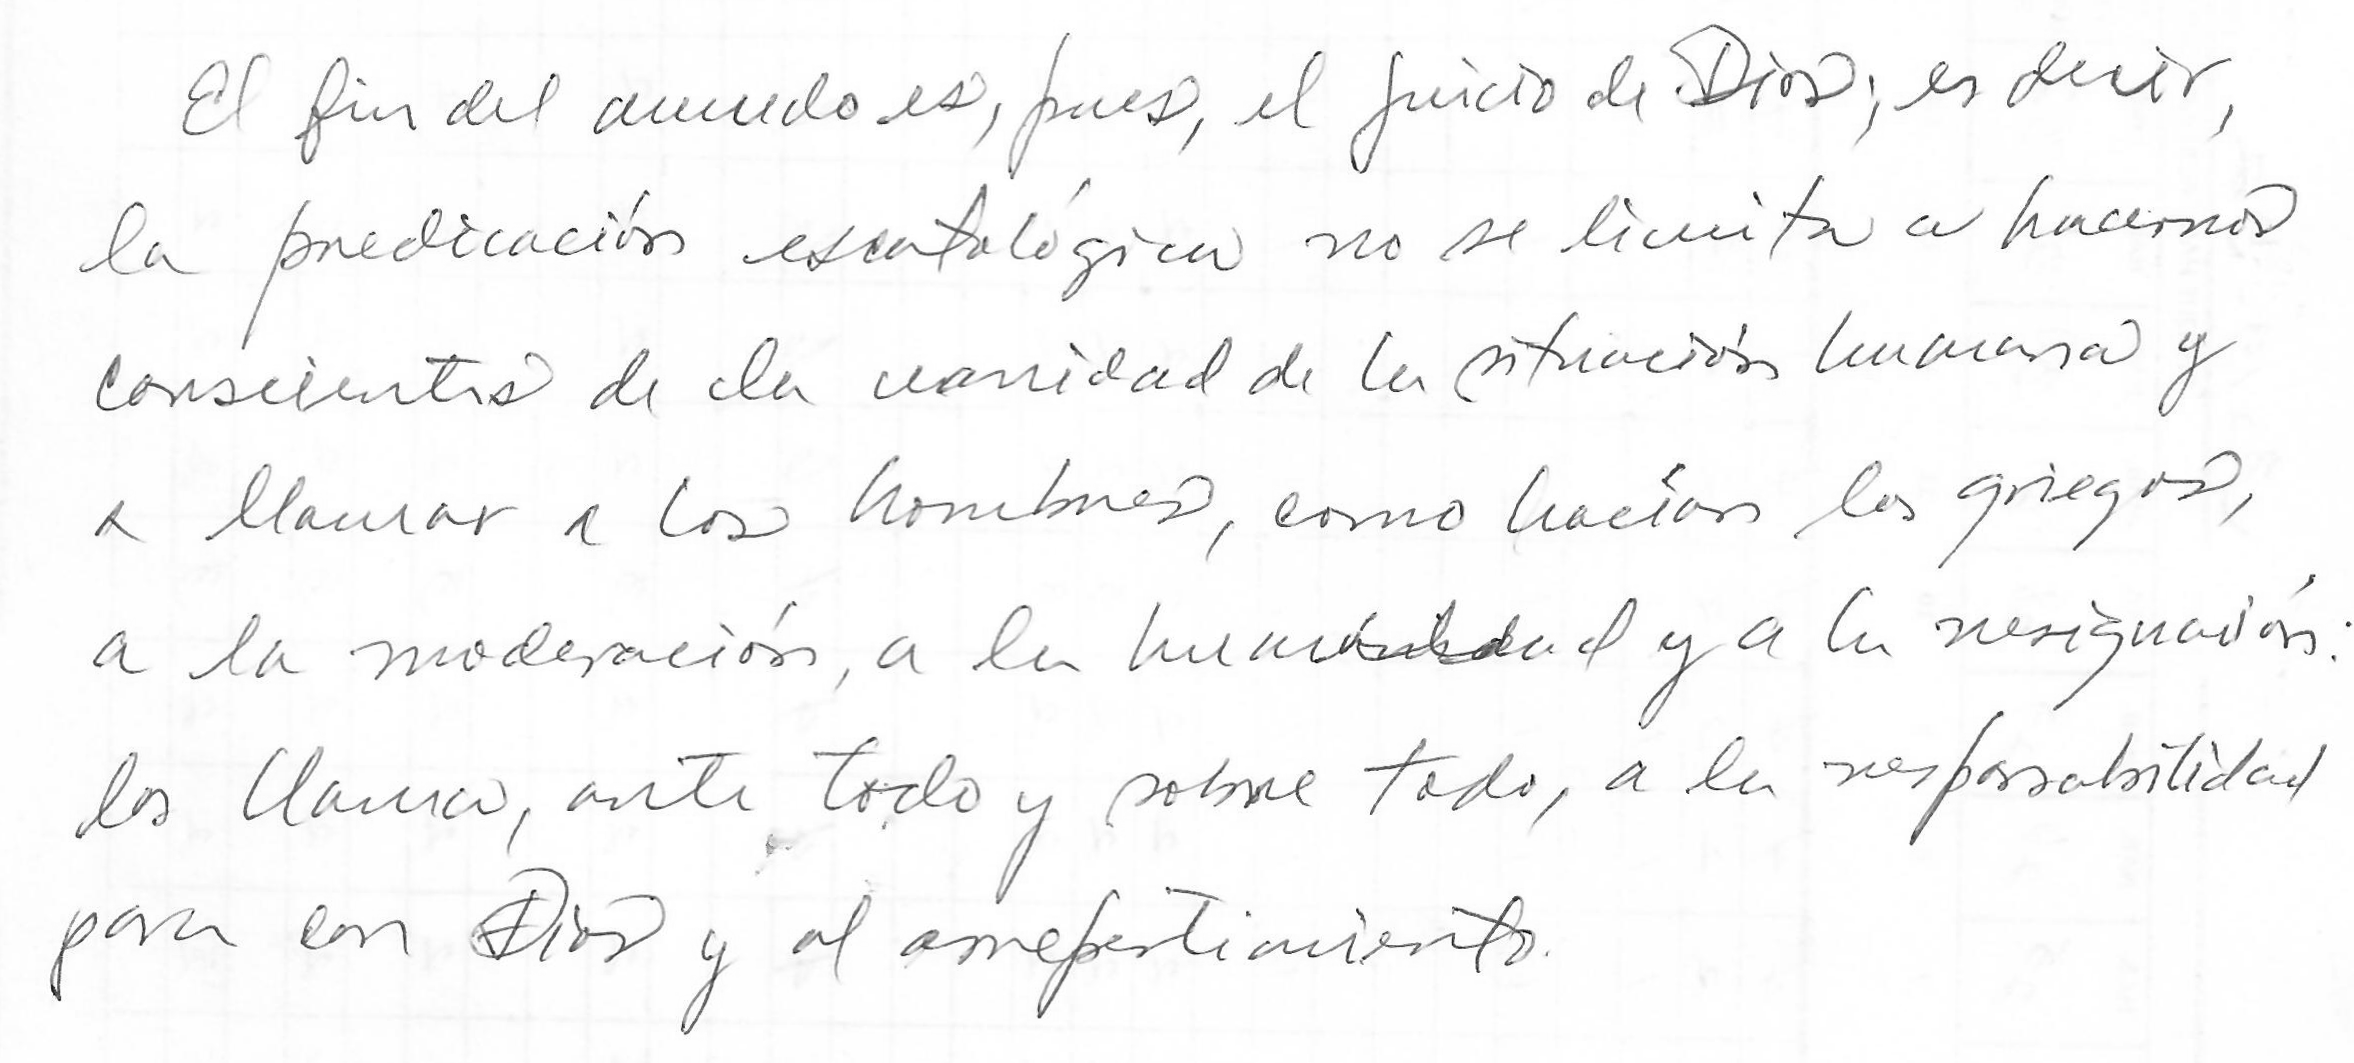 El fin del mundo es, pues, el juicio de Dios; es decir,
la predicación escatológica no se limita a hacernos
conscientes de la vanidad de la situación humana y
a llamar a los hombres, como hacían los griegos,
a la moderación, a la humildad y a la resignación:
los llama, ante todo y sobre todo, a la responsabilidad
para con Dios y al arrepentimiento.